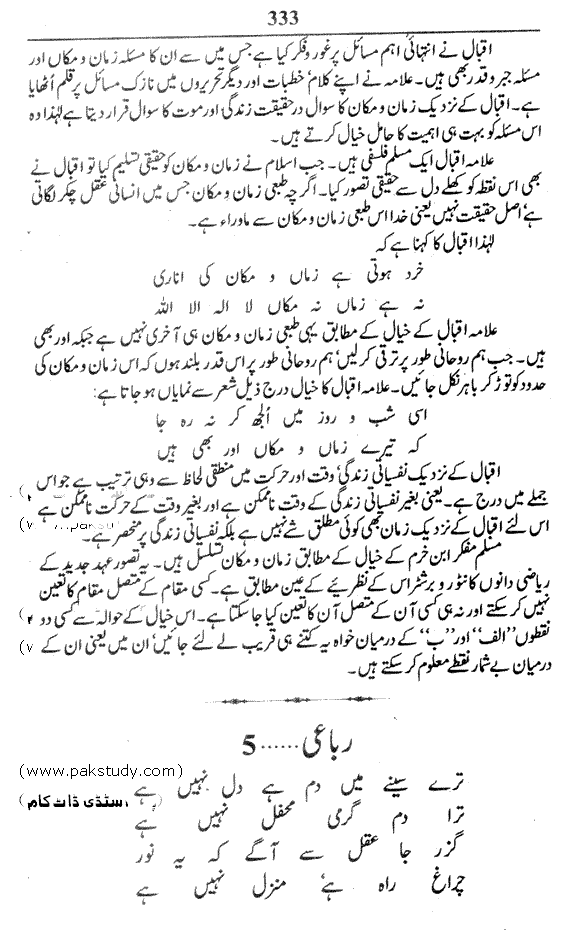 333
اقبال نے انتہائی اہم مسائل پر غور و فکر کیا ہے جس میں سے ان کا مسئلہ زمان و مکاں اور
مسئلہ جبر و قدر بھی ہیں۔ علامہ نے اپنے کلام' خطبات اور دیگر تحریروں میں نازک مسائل پر قلم اُٹھایا
ہے۔ اقبال کے نزدیک زمان و مکان کا سوال در حقیقت زندگی اور موت کا سوال قرار دیتا ہے لہٰذا وہ
اس مسئلہ کو بہت ہی اہمیت کا حامل خیال کرتے ہیں۔
علامہ اقبال ایک مسلم فلسفی ہیں۔ جب اسلام نے زمان و مکان کو حقیقی تسلیم کیا تو اقبال نے
بھی اس نقطہ کو کھلے دل سے حقیقی تصور کیا۔ اگرچہ طبعی زمان و مکان جس میں انسانی عقل چکر لگاتی
ہے' اصل حقیقت نہیں یعنی خدا اس طبعی زمان و مکان سے ماوراء ہے۔
لہٰذا اقبال کا کہنا ہے کہ
خرد ہوتی ہے زماں و مکاں کی اناری
نہ ہے زماں نہ مکاں لا الہ الا اللہ
علامہ اقبال کے خیال کے مطابق یہی طبعی زمان و مکان ہی آخری نہیں ہے جبکہ اور بھی
ہیں۔ جب ہم روحانی طور پر ترقی کر لیں' ہم روحانی طور پر اس قدر بلند ہوں کہ اس زمان و مکان کی
حدود کو توڑ کر باہر نکل جائیں۔ علامہ اقبال کا خیال درج ذیل شعر سے نمایاں ہو جاتا ہے:
اسی شب و روز میں اُلجھ کر نہ رہ جا
کہ تیرے زماں و مکاں اور بھی ہیں
اقبال کے نزدیک نفسیاتی زندگی' وقت اور حرکت میں منطقی لحاظ سے وہی ترتیب ہے جو اس
جملے میں درج ہے۔ یعنی بغیر نفسیاتی زندگی کے وقت ناممکن ہے اور بغیر وقت کے حرکت ناممکن ہے
اس لئے اقبال کے نزدیک زمان بھی کوئی مطلق شے نہیں ہے بلکہ نفسیاتی زندگی پر منحصر ہے۔
مسلم مفکر ابن خرم کے خیال کے مطابق زمان و مکان تسلسل ہیں۔ یہ تصور عہد جدید کے
ریاضی دانوں کانٹور و برشٹراس کے نظریئے کے عین مطابق ہے۔ کسی مقام کے متصل مقام کا تعین
نہیں کر سکتے اور نہ ہی کسی آن کے متصل آن کا تعین کیا جا سکتا ہے۔ اس خیال کے حوالہ سے کسی دو
نقطوں "الف" اور "ب" کے درمیان خواہ یہ کتنے ہی قریب لے لئے جائیں' ان میں یعنی ان کے
درمیان بے شمار نقطے معلوم کر سکتے ہیں۔
رباعی ...... 5
(www.pakstudy.com)
ترے سینے میں دم ہے دل نہیں ہے
سٹڈی ڈاٹ کام)
ترا دم گرمی محفل نہیں ہے
گزر جا عقل سے آگے کہ یہ نور
چراغ راہ ہے' منزل نہیں ہے